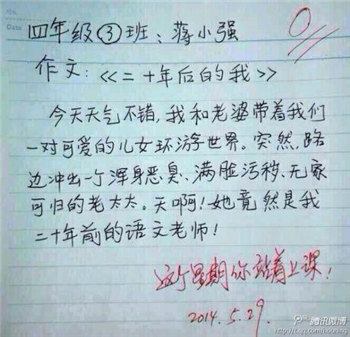 Date
四年级③班：蒋小强
0
作文：《二十年后的我》
今天天气不错，我和老婆带着我们
一对可爱的儿女环游世界。突然，路
边冲出一个浑身恶臭、满脸污秽、无家
可归的老太太。天啊！她竟然是我
二十年前的语文老师！
这个星期你站着上课！
2014.5.29.
腾讯微博